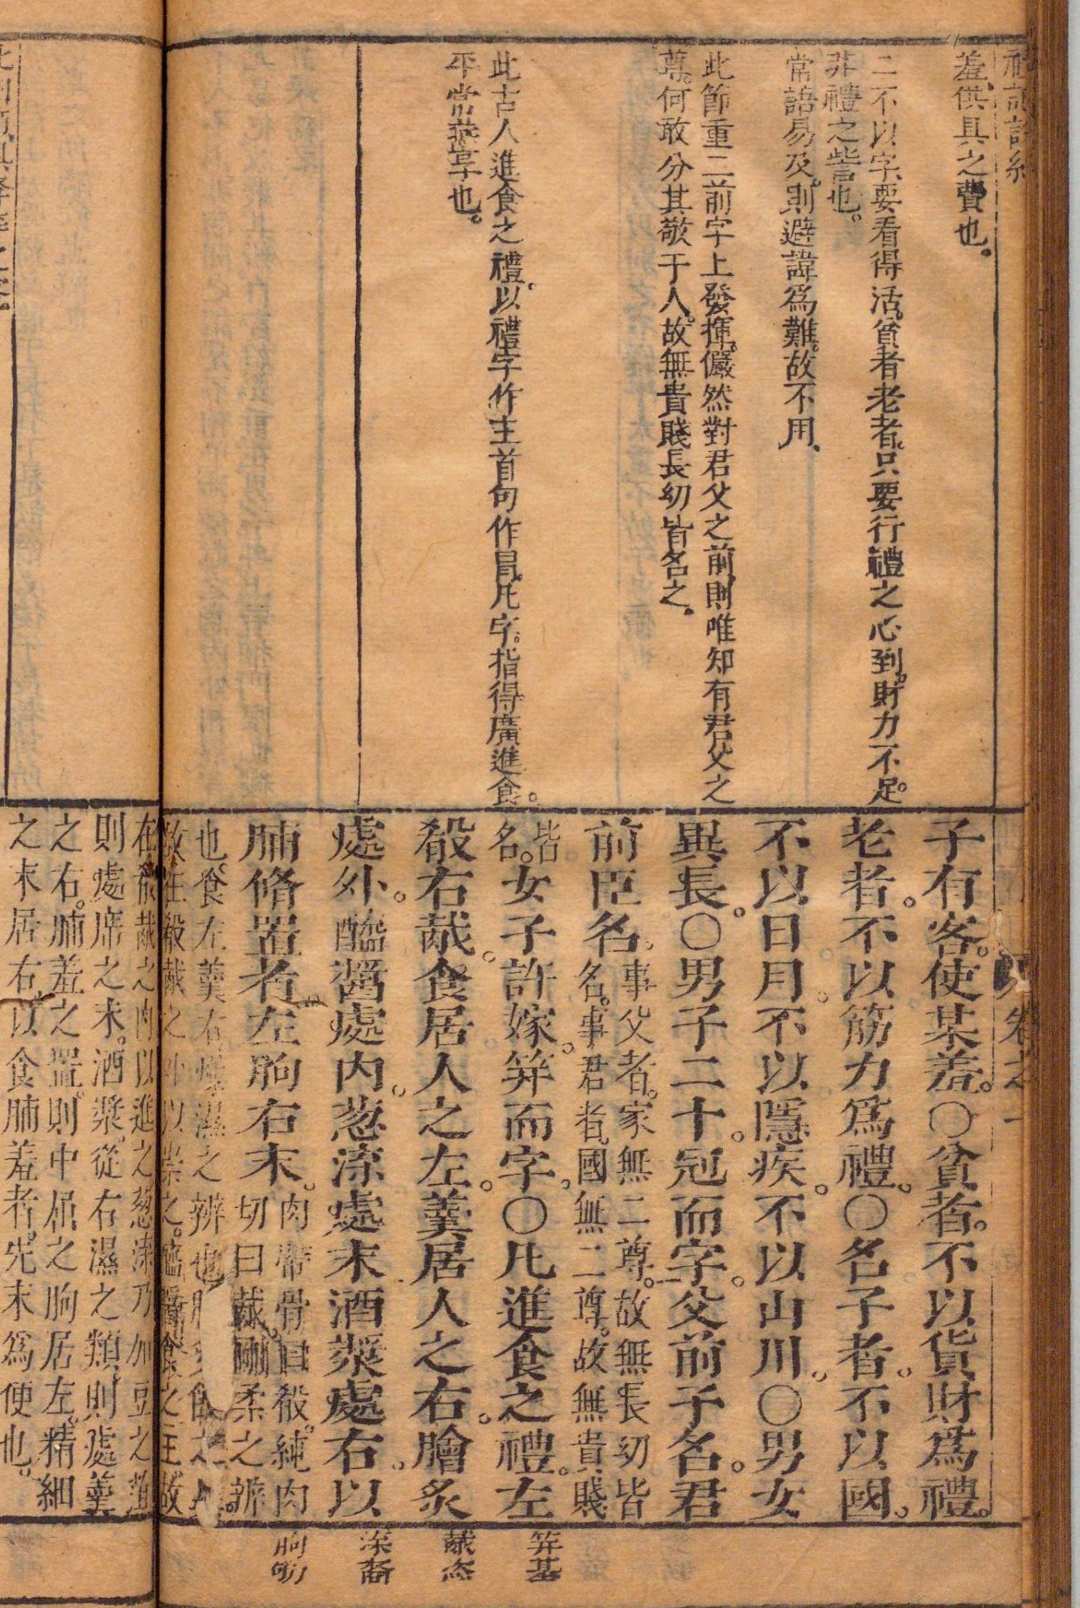 羞供具之費也。
二不以字要看得活。貧者老者。只要行禮之心到。財力不足。
非禮之訾也。
常語易及。則避諱爲難。故不用。
此節重二前字上發揮。儼然對君父之前。則唯知有君父之
尊。何敢分其敬于人。故無貴賤長幼皆名之。
此古人進食之禮。以禮字作主首句作冐。凡字。指得廣進食。
平常燕享也。
子有客。使某羞。〇貧者。不以貨財爲禮。
老者。不以筋力爲禮。〇名子者。不以國。
不以日月。不以隱疾。不以山川。〇男女
異長。〇男子二十。冠而字。父前子名。君
前臣名。事父者。家無二尊。故無長幼皆
名。事君者。國無二尊。故無貴賤
皆名。女子許嫁。笄而字。〇凡進食之禮。左
殽右胾。食居人之左。羹居人之右。膾炙
處外。醯醬處內。葱渫處末。酒漿處右。以
脯脩置者。左朐右末。肉帶骨曰殽。純肉
切曰胾。剛柔之辨
也。食左羹右燥濕之辨也
在殽胾之內以進之葱渫乃加豆之
則處席之末。酒漿。從右濕之類。則處羹
之右。脯羞之置。則中屈之朐居左。精細
之末居右。以食脯羞者。先末爲便也。
笄基
胾恣
渫裔
朐劬